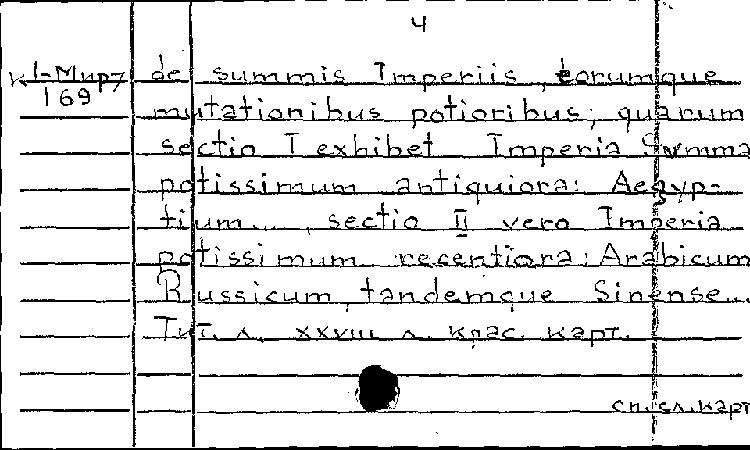 4
К I-Мир7 de summis Imperiis, eorumque
169 mutationibus potioribus; quarum
sectio I exhibet Imperia Summa
potissimum antiquiora: Aegyp-
tium... , sectio II vero Imperia
potissimum recentiora: Arabicum
Russicum, tandemque Sinense...
Тит. л. XXVIII л. крас. карт.
сл. сл. карт